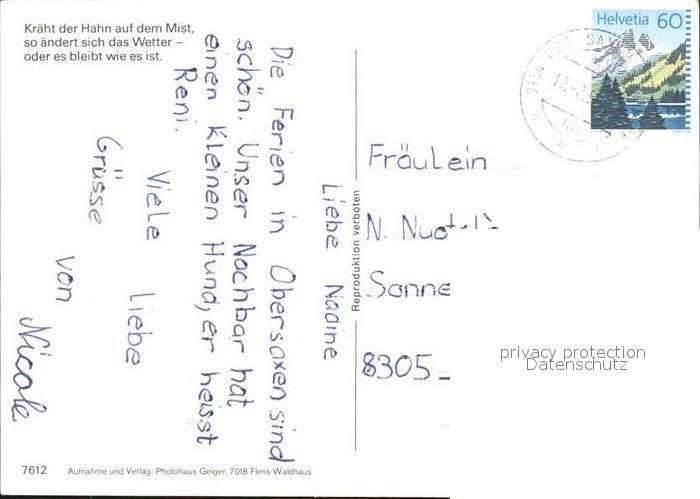 Kräht der Hahn auf dem Mist,
so ändert sich das Wetter –
oder es bleibt wie es ist.
Helvetia 60
Liebe Nadine
Die Ferien in Obersaxen sind
schön. Unser Nachbar hat
einen kleinen Hund, er heisst
Reni.
Viele Liebe
Grüsse
von
Nicole
Reproduktion verboten
Fräulein
N.
Sonne
8305
privacy protection
Datenschutz
7612 Aufnahme und Verlag: Photohaus Geiger, 7018 Flims-Waldhaus